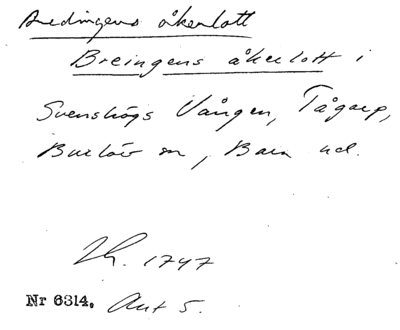 Bredingens åkerlott
Breingens åkerlott i
Svenshögs Vången, Tågarp,
Burlöv sn, Bara hd.
Lh. 1747
Nr 6314. Akt 5.